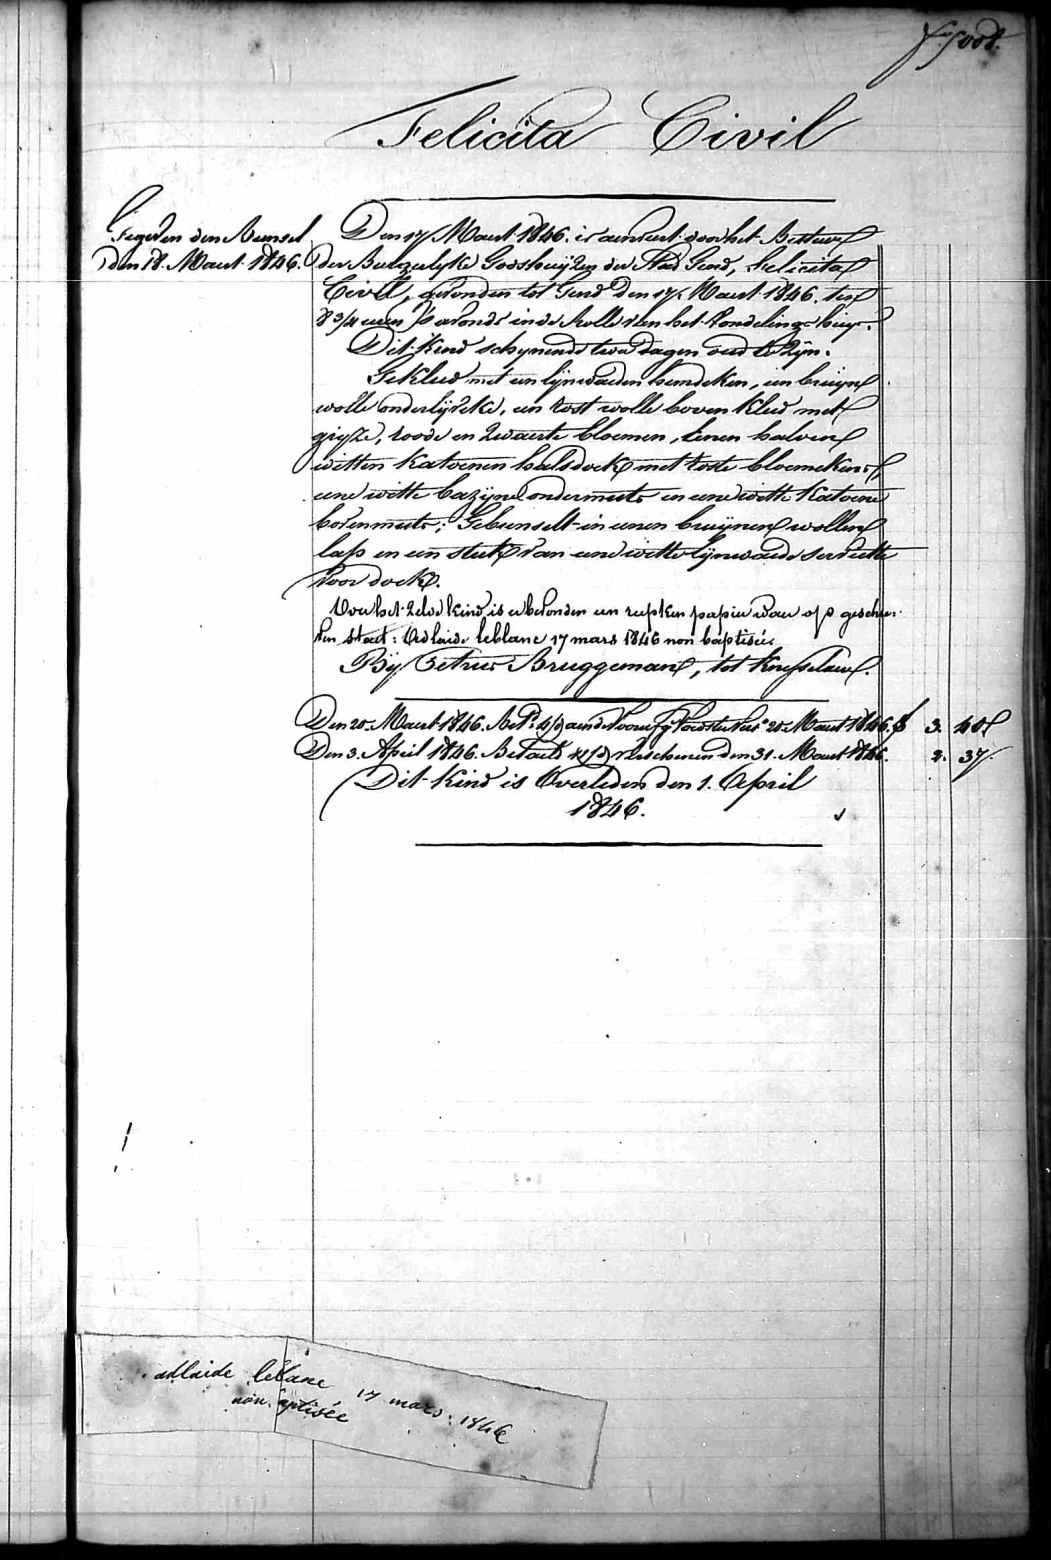 Felicita Civil
Gegeven den Bunsel
den 18. Maert 1846.
Den 17 Maert 1846. is aenveert door het Bestuer
der Burgerlyke Godshuÿzen der Stad Gend, Felicita
Civil, gevonden tot Gend den 17. Maert 1846. ten
8 3/4 uren 's avonds in de Rolle van het Vondelingshuys.
Dit Kind schynende twee dagen oud te Zÿn.
Gekleed met een lÿnwaeden hemdeken, een bruÿn
wolle onderlÿveke, een rost wolle boven kleed met
gryze, roode en Zwaerte bloemen, eenen halven
witten Katoenen halsdoek met roste bloemekens,
eene witte bazÿne ondermuts en eene witte Katoene
bovenmuts; Gebunselt in eenen bruÿnen wollen
lap en een stuk van eene witte lÿnwaede serviette
voor doek.
Over het zelve kind is er bevonden een reepken papier waer op geschre-
ven staet: Adlaide leblanc 17 mars 1846 non baptisée.
By Petrus Bruggeman, tot Knesselaere.
Den 20. Maert 1846. Bet. aende Voorsz. 20. Maert 1846. 3. 40
Den 3. April 1846. Betaelt verschenen den 31. Maert 1846. 2. 37.
Dit Kind is Overleden den 1. April
1846.
adlaide leblanc 17 mars. 1846
non baptisée